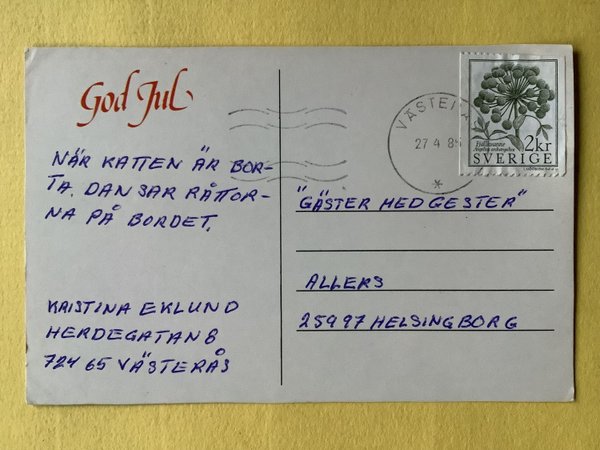 God Jul
NÄR KATTEN ÄR BOR-
TA. DANSAR RÅTTOR-
NA PÅ BORDET.
KRISTINA EKLUND
HERDEGATAN 8
724 65 VÄSTERÅS
27 4 8
Fjällkvanne
2kr
SVERIGE
"GÄSTER MED GESTER"
ALLERS
25997 HELSINGBORG